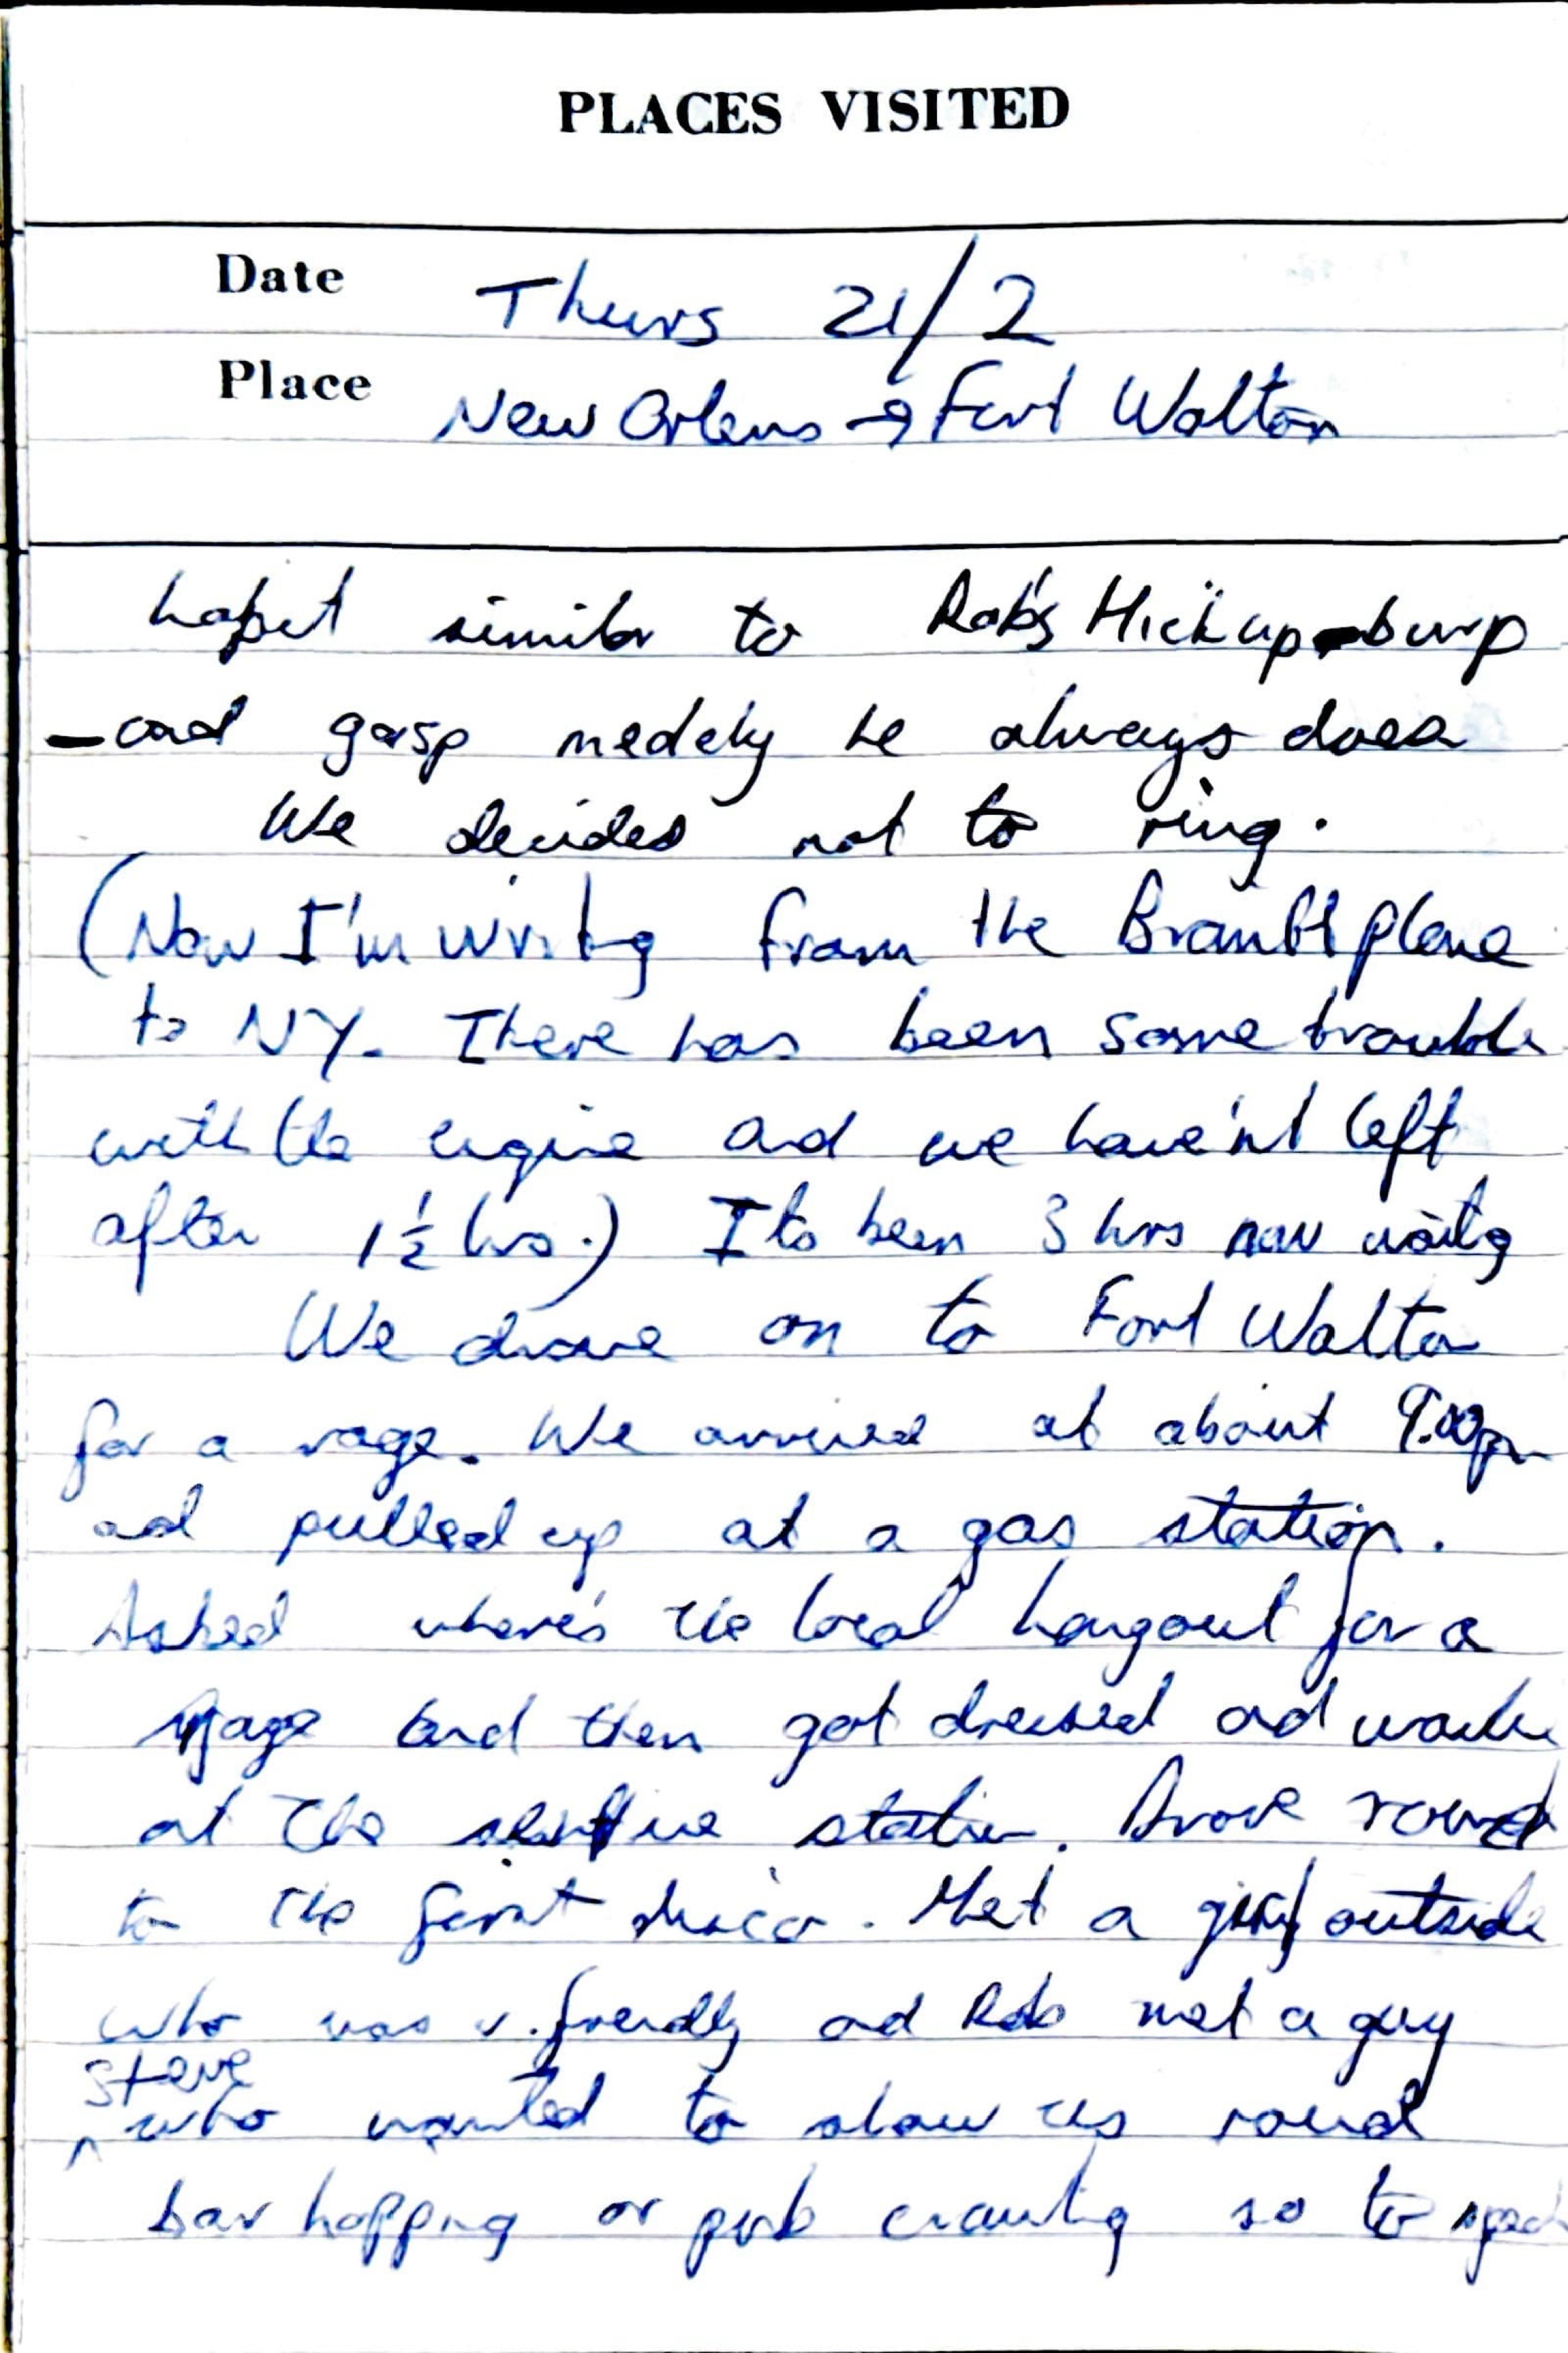 PLACES VISITED
Date Thurs 21/2
Place New Orlens → Fort Walton
similar to Rob's Hickup-burp
- and gasp medely he always does
We decided not to ring.
(Now I'm writing from the Braniff plane
to NY. There has been some trouble
with the engine and we have'nt left
after 1½ hrs.) Its been 3 hrs now waitg
We drove on to Fort Walton
for a rage. We arrived at about 9.00pm
and pulled up at a gas station.
Asked where's the local hangout for a
rage and then got dressed and
at the station. Drove round
to the first disco. Met a guy outside
who was v. friendly and Rob met a guy
Steve
^ who wanted to show us round
bar hopping or pub crawling so to speak